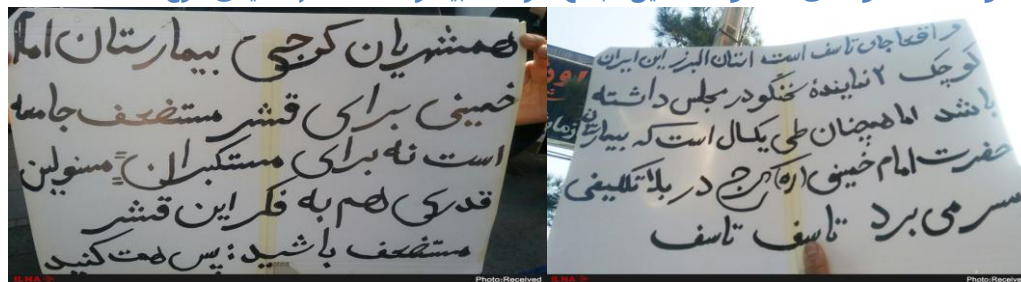 همشهریان کرجی بیمارستان امام
خمینی برای قشر مستضعف جامعه
است نه برای مستکبران = مسئولین
قدری هم به فکر این قشر
مستضعف باشید: پس همت کنید
ILNA
Photo:Received
واقعا جای تاسف است استان البرز این ایران
کوچک ۲ نماینده سخنگو در مجلس داشته
باشد اما همچنان طی یکسال است که بیمارستان
حضرت امام خمینی (ره) کرج در بلاتکلیفی
سر می برد تاسف تاسف
ILNA
Photo:Receive